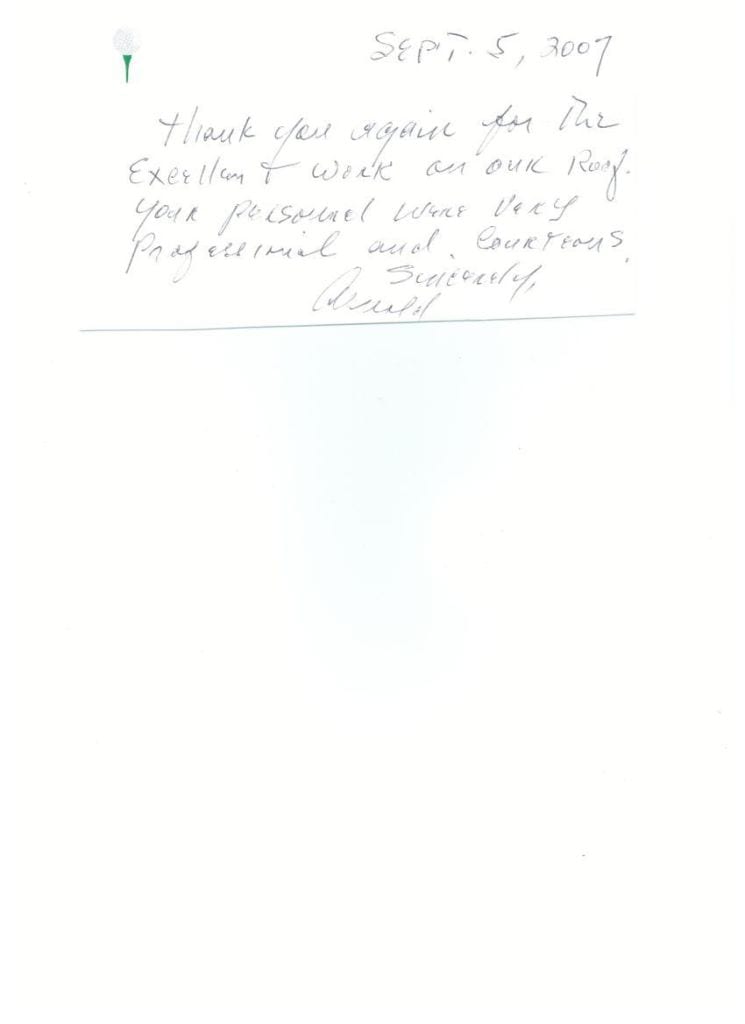 SEPT. 5, 2007
Thank you again for The
Excellent work on our Roof.
Your personnel were very
Professional and Courteous.
Sincerely,
Arnold